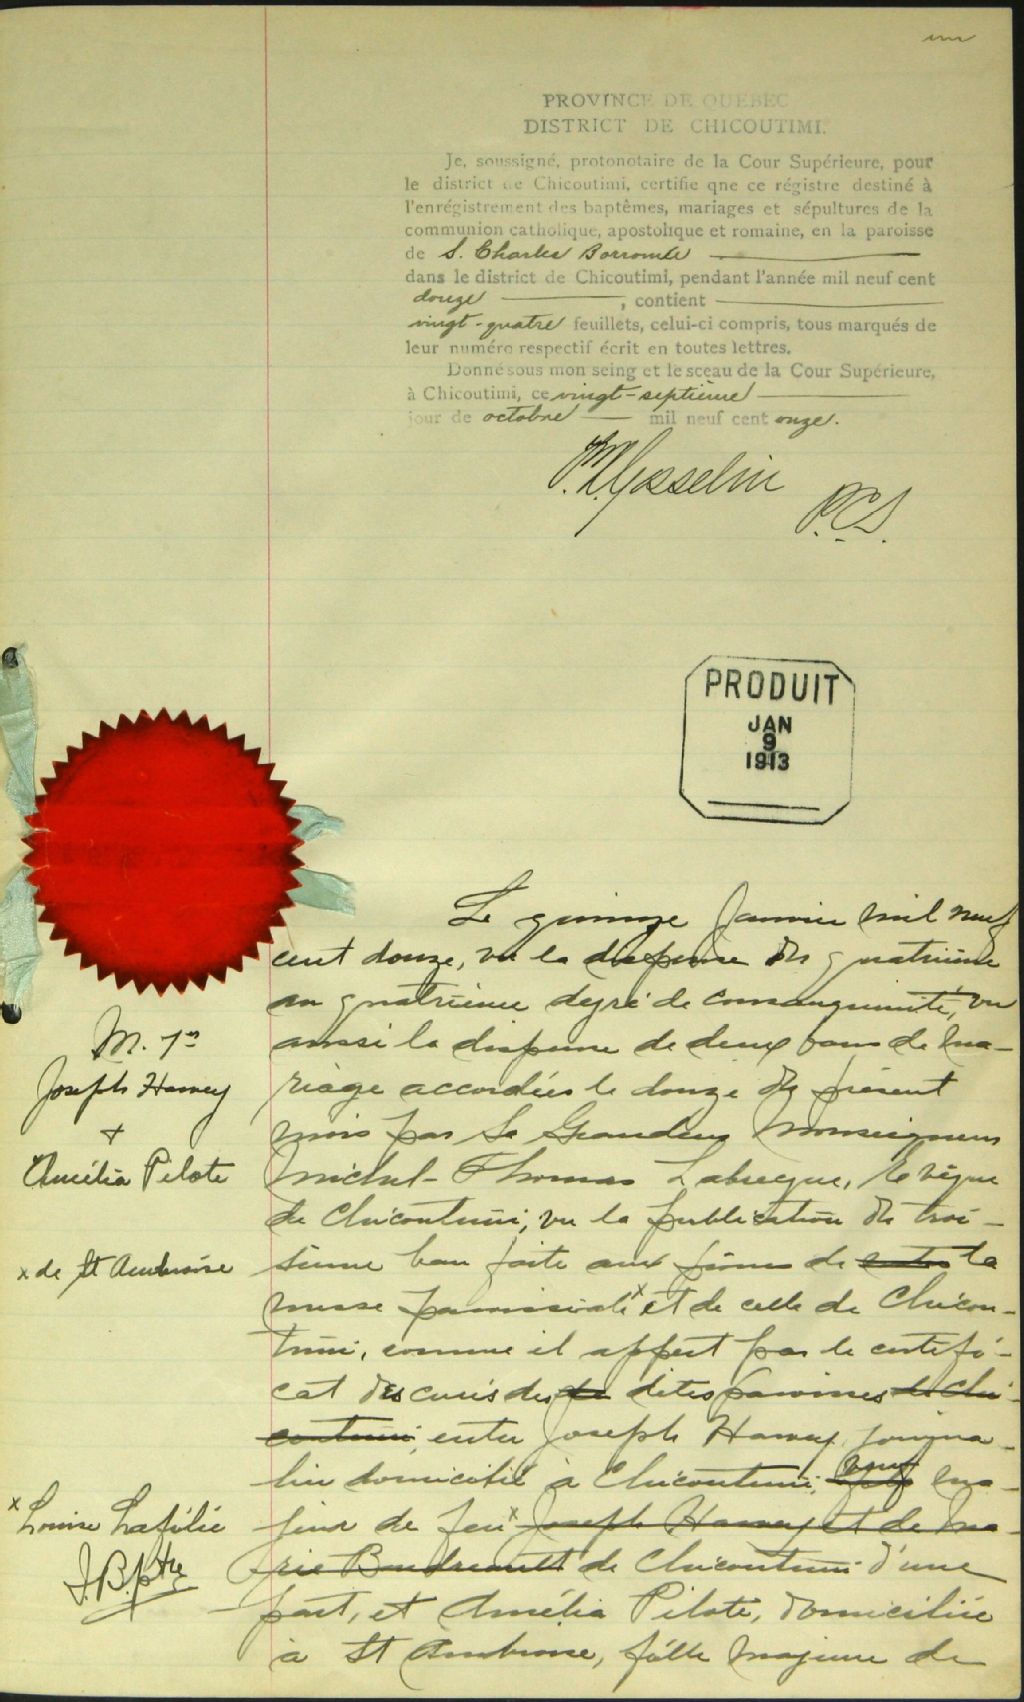 un
PROVINCE DE QUÉBEC
DISTRICT DE CHICOUTIMI.
Je, soussigné, protonotaire de la Cour Supérieure, pour
le district de Chicoutimi, certifie qne ce régistre destiné à
l'enrégistrement des baptêmes, mariages et sépultures de la
communion catholique, apostolique et romaine, en la paroisse
de S. Charles Borromée
dans le district de Chicoutimi, pendant l'année mil neuf cent
douze, contient
vingt-quatre feuillets, celui-ci compris, tous marqués de
leur numéro respectif écrit en toutes lettres.
Donné sous mon seing et le sceau de la Cour Supérieure,
à Chicoutimi, ce vingt-septième
jour de octobre mil neuf cent onze.
Gosselin
P.C.S.
PRODUIT
JAN
9
1913
Le quinze Janvier mil neuf
cent douze, vu la dispense du quatrième
au quatrième degré de consanguinité, vu
aussi la dispense de deux bans de ma-
riage accordées le douze du présent
mois par Sa Grandeur Monseigneur
Michel-Thomas Labrecque, Evêque
de Chicoutimi, vu la publication du troi-
sième ban faite aux prônes de la
messe paroissiale x et de celle de Chicou-
timi, comme il appert par le certifi-
cat des curés des dites paroisses de Chi-
coutimi, entre Joseph Harvey, journa-
lier domicilié à Chicoutimi, veuf ma-
jeur de feu x Joseph Harvey et de Ma-
rie Boudreault de Chicoutimi d'une
part, et Amélia Pilote, domiciliée
à St Ambroise, fille majeure de
M. 1er
Joseph Harvey
+
Amélia Pilote
x de St Ambroise
x Louise Lafélie
J.B. ptre